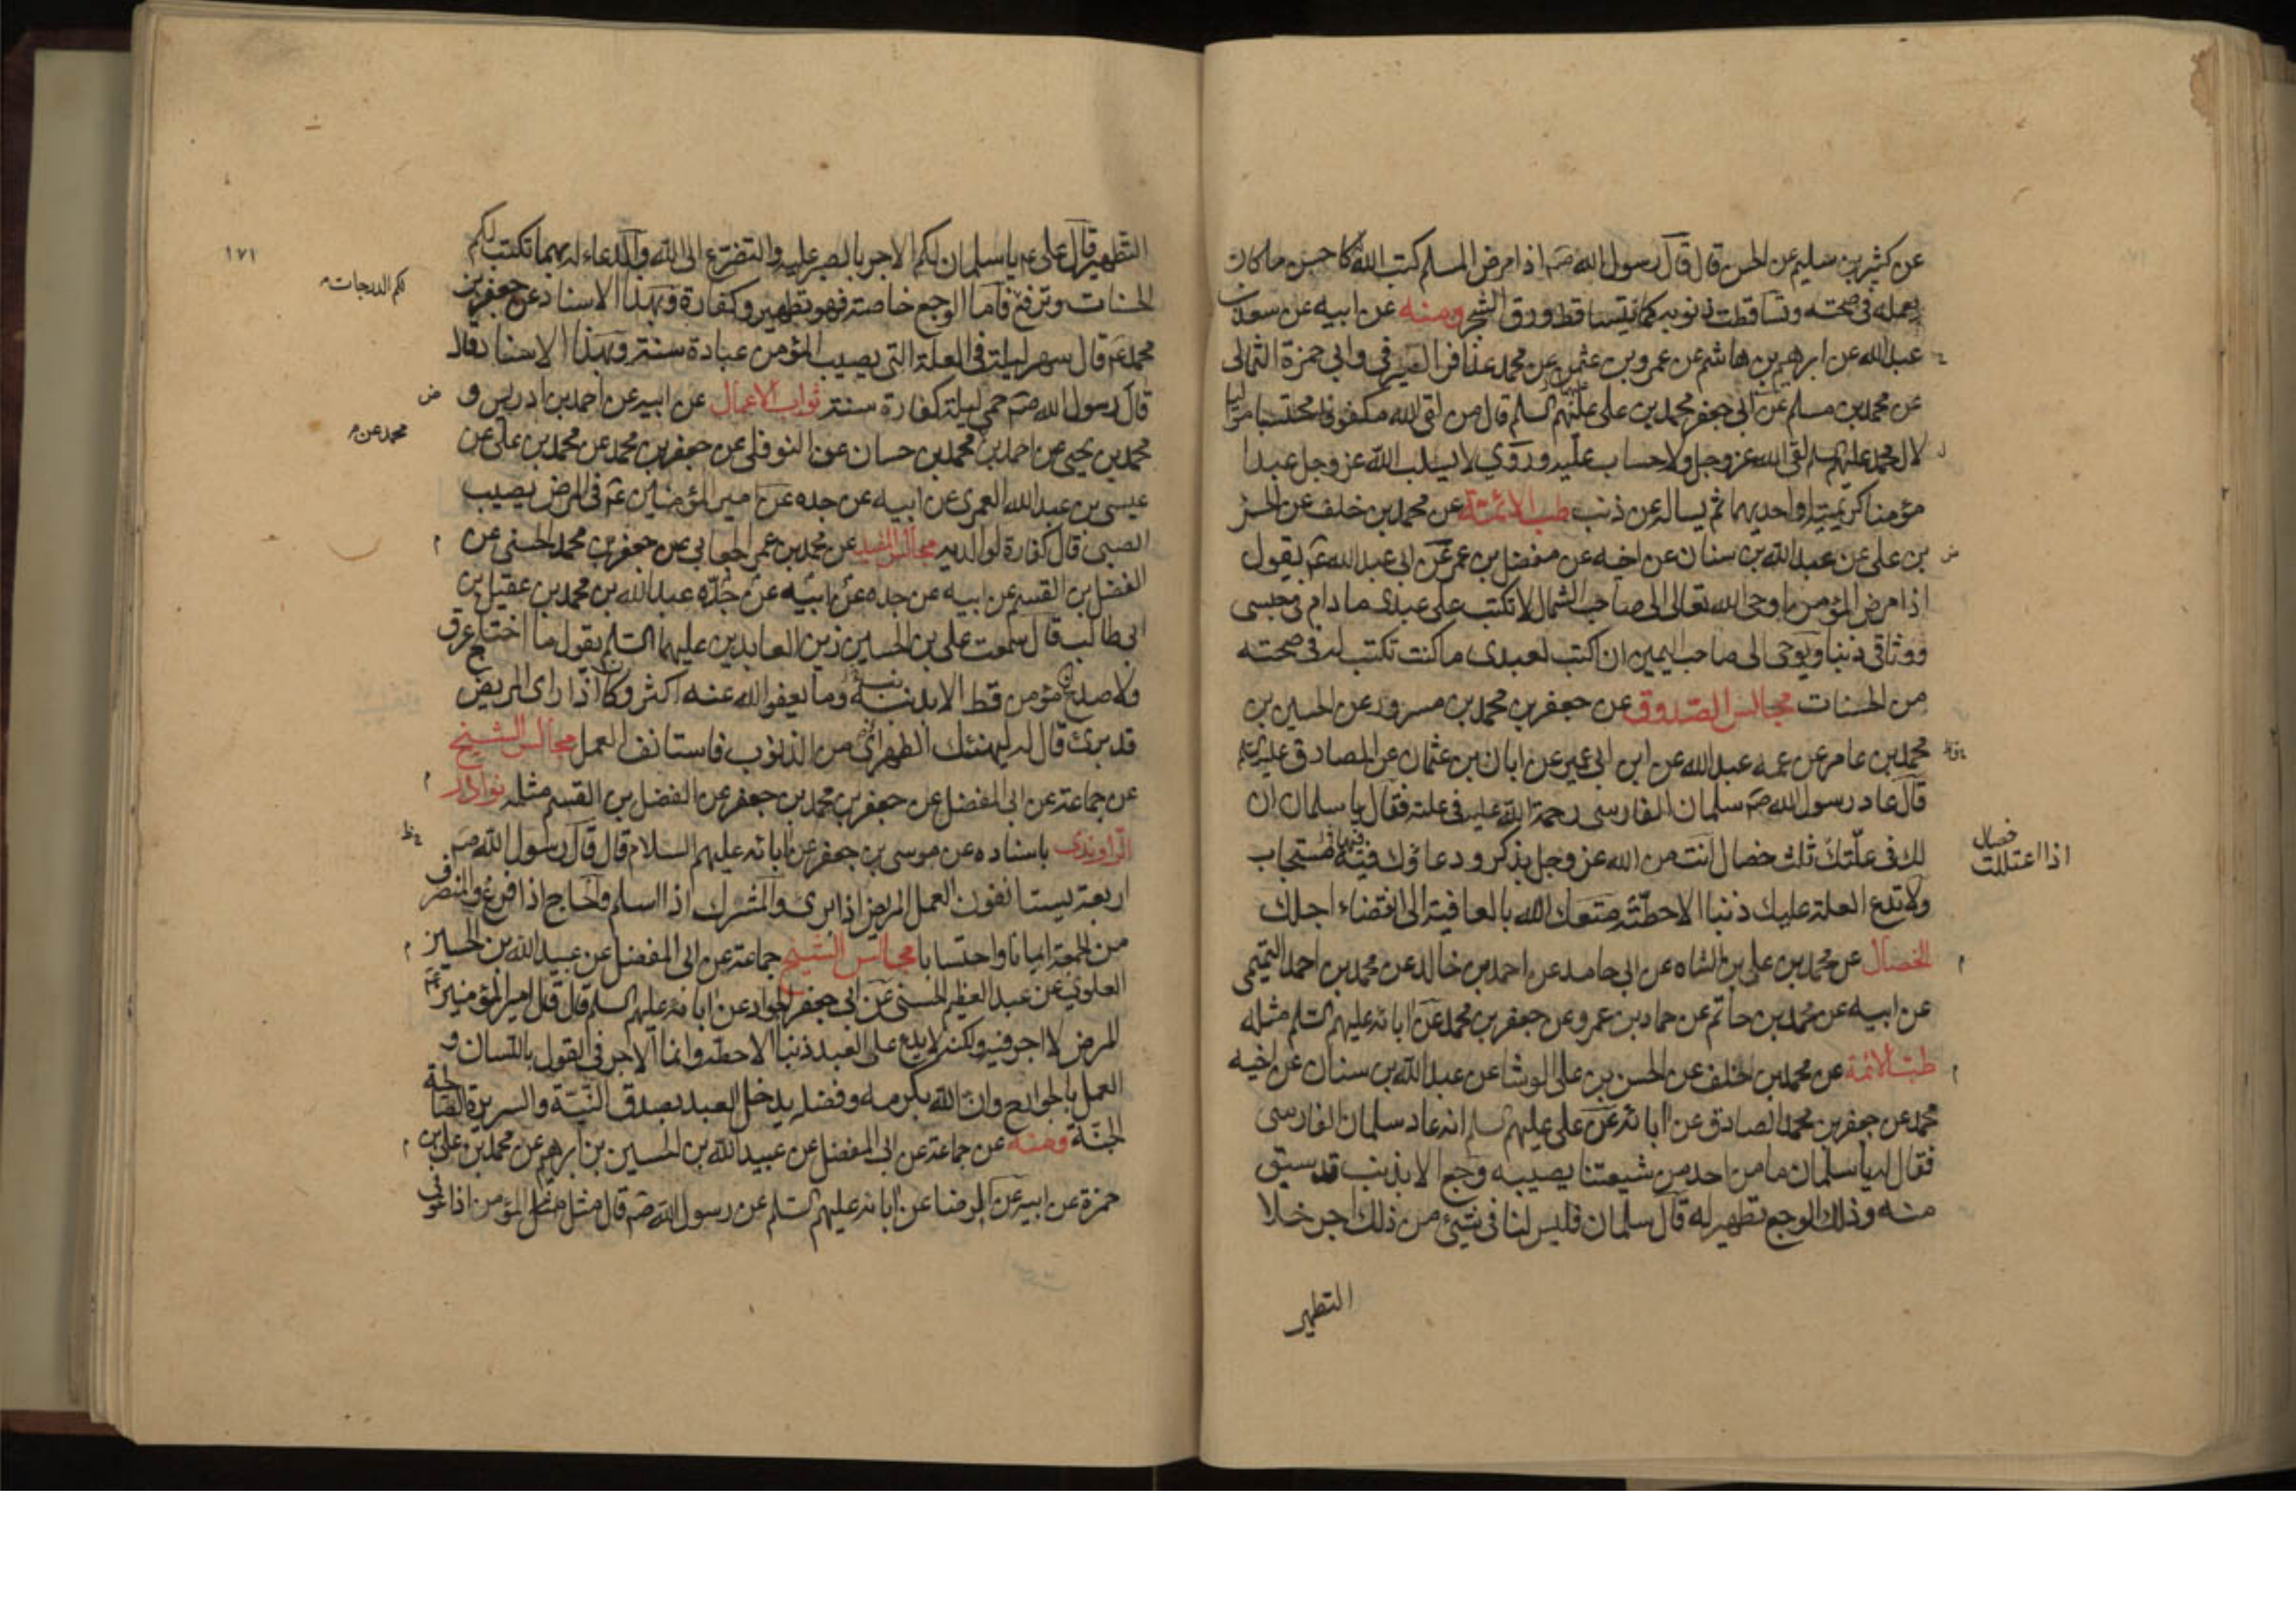 عن كثير بن سليم عن الحسن قال قال رسول الله صم اذا مرض المسلم كتب الله كاحسن ما كان
يعمله في صحته وتساقطت ذنوبه كما يتساقط ورق الشجر ومنه عن ابيه عن سعد بن
عبد الله عن ابرهيم بن هاشم عن عمرو بن عثمن عن محمد عذافر الصيرفي عن ابي حمزة الثمالى
عن محمد بن مسلم عن ابي جعفر محمد بن على عليهم السلم قال من لقى الله مكفوفا محتسبا مواليا
لال محمد عليهم السلم لقى الله عز وجل ولا حساب عليه وروي لا يسلب الله عز وجل عبدا
مؤمنا كريمتيه او احديهما ثم يساله عن ذنب طب الائمة عن محمد بن خلف عن الحسن
بن على عن عبد الله بن سنان عن اخيه عن مفضل بن عمر عن ابى عبد الله عم يقول
اذا مرض المؤمن اوحى الله تعالى الى صاحب الشمال لا تكتب على عبدى ما دام في حبسى
ووثاقى ذنبا ويوحى الى صاحب اليمين ان اكتب لعبدى ما كنت تكتب له في صحته
من الحسنات مجالس الصدوق عن جعفر بن محمد بن مسرور عن الحسين بن
محمد بن عامر عن عمه عبد الله عن ابن ابى عمير عن ابان بن عثمان عن الصادق عليه السلم
قال عاد رسول الله صم سلمان الفارسى رحمة الله عليه في علته فقال يا سلمان ان
لك في علتك ثلث خصال انت من الله عز وجل بذكر ودعاؤك فيه مستجاب
اذا اعتللت خصال
ولا تدع العلة عليك ذنبا الا حطته متعك الله بالعافية الى انقضاء اجلك
الخصال عن محمد بن على بن الشاه عن ابى حامد عن احمد بن خالد عن محمد بن احمد التميمى
عن ابيه عن محمد بن حاتم عن حماد بن عمرو عن جعفر بن محمد عن ابائه عليهم السلم مثله
طب الائمة عن محمد بن خلف عن الحسن بن على الوشا عن عبد الله بن سنان عن اخيه
محمد عن جعفر بن محمد الصادق عن ابائه عن على عليهم السلم انه عاد سلمان الفارسى
فقال له يا سلمان ما من احد من شيعتنا يصيبه وجع الا بذنب قد سبق
منه وذلك الوجع تطهير له قال سلمان فليس لنا في شيئ من ذلك اجر خلا
التطهير
١٧١
التطهير قال على عم يا سلمان لكم الاجر بالصبر عليه والتضرع الى الله والدعاء له بهما تكتب لكم
الحسنات وترفع فاما الوجع خاصة فهو تطهير وكفارة وبهذا الاسناد عن جعفر بن
لكم الدرجات
محمد عم قال سهر ليلة في العلة التى يصيب المؤمن عبادة سنة وبهذا الاسناد قال
قال رسول الله صم حمى ليلة كفارة سنة ثواب الاعمال عن ابيه عن احمد بن ادريس و
محمد بن يحيى عن احمد بن محمد بن حسان عن النوفلى عن جعفر بن محمد عن محمد بن على عن
محمد عن
عيسى بن عبد الله العمرى عن ابيه عن جده عن امير المؤمنين عم في المرض يصيب
الصبى قال كفارة لوالديه مجالس المفيد عن محمد بن عمر الجعابى عن جعفر بن محمد الحسنى عن
الفضل بن القسم عن ابيه عن جده عن ابيه عن جده عبد الله بن محمد بن عقيل بن
ابى طالب قال سمعت على بن الحسين زين العابدين عليهما السلم يقول ما اختلج عرق
ولا صدع مؤمن قط الا بذنبه وما يعفو الله عنه اكثر وكان اذا راى المريض
قد برئ قال له ليهنئك الطهر اى من الذنوب فاستانف العمل مجالس الشيخ
عن جماعة عن ابى المفضل عن جعفر بن محمد بن جعفر عن الفضل بن القسم مثله نوادر
الراوندى باسناده عن موسى بن جعفر عن ابائه عليهم السلام قال قال رسول الله صم
اربعة يستانفون العمل المريض اذا برئ والمشرك اذا اسلم والحاج اذا فرغ والمنصرف
من الجمعة ايمانا واحتسابا مجالس الشيخ جماعة عن ابى المفضل عن عبيد الله بن الحسين
العلوى عن عبد العظيم الحسنى عن ابى جعفر الجواد عن ابائه عليهم السلم قال قال امير المؤمنين عم
المرض لا اجر فيه ولكنه لا يدع على العبد ذنبا الا حطه وانما الاجر في القول باللسان و
العمل بالجوارح وان الله بكرمه وفضله يدخل العبد بصدق النية والسريرة الصالحة
الجنة ومنه عن جماعة عن ابى المفضل عن عبيد الله بن الحسين بن ابرهيم عن محمد بن على بن
حمزة عن ابيه عن الرضا عن ابائه عليهم السلم عن رسول الله صم قال مثل المؤمن اذا عوفى